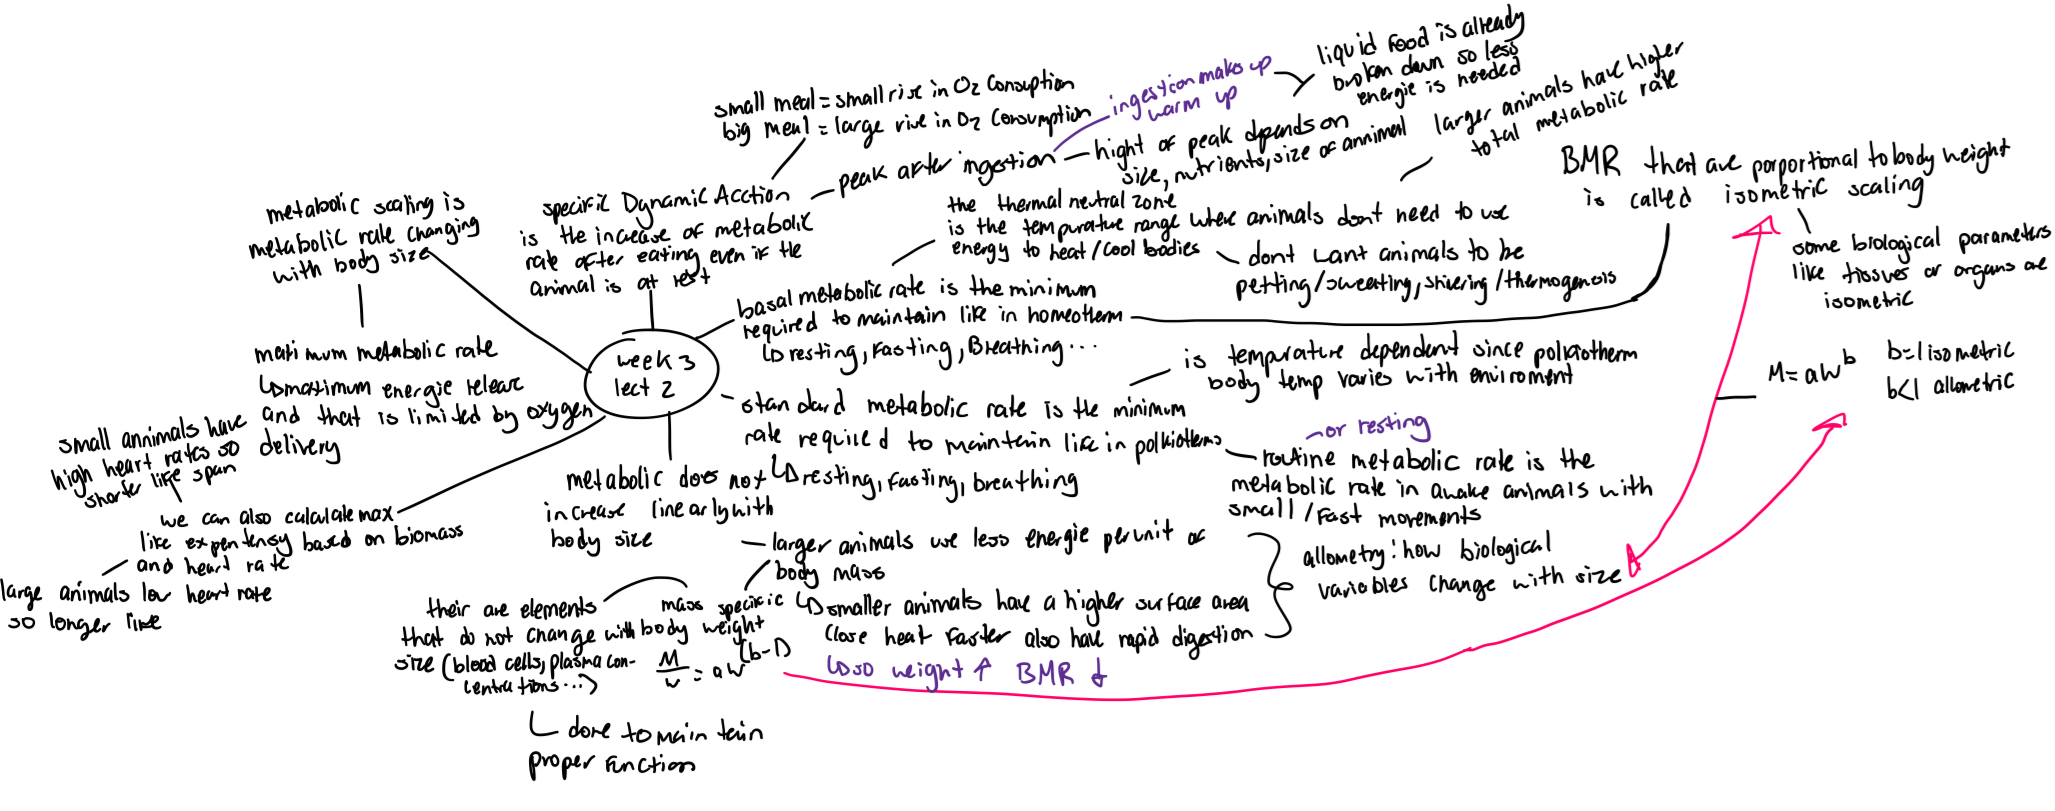 week 3
lect 2
metabolic scaling is
metabolic rate changing
with body size
maximum metabolic rate
↳maximum energie release
and that is limited by oxygen
delivery
small annimals have
high heart rates so
shorter life span
we can also calculate max
life expentensy based on biomass
and heart rate
large animals low heart rate
so longer life
specific Dynamic Acction
is the increase of metabolic
rate after eating even if the
animal is at rest
small meal = small rise in O2 Consuption
big meal = large rise in O2 Consumption
peak after ingestion
ingestion makes up
warm up
hight of peak dpends on
size, nutrients, size of annimal
liquid food is already
broken down so less
energie is needed
basal metabolic rate is the minimum
required to maintain life in homeotherm
↳resting, Fasting, Breathing...
the thermal neutral zone
is the tempurature range where animals dont need to use
energy to heat/cool bodies
larger animals have higher
total metabolic rate
dont want animals to be
petting/sweating, shivering/thermogenosis
BMR that are porportional to body weight
is called isometric scaling
some biological parameters
like tissues or organs are
isometric
M = aW^b
b=1 isometric
b<1 allometric
standard metabolic rate is the minimum
rate required to maintain life in polkiotherms
↳resting, Fasting, breathing
is tempurature dependent since polkiotherm
body temp varies with enviroment
~or resting
routine metabolic rate is the
metabolic rate in awake animals with
small/Fast movements
metabolic does not
increase linearly with
body size
larger animals use less energie per unit of
body mass
↳smaller animals have a higher surface area
(lose heat Faster also have rapid digestion
↳so weight ↑ BMR ↓
allometry: how biological
variables change with size
mass specific
weight
M/W = aW^(b-1)
their are elements
that do not change with body
size (blood cells, plasma con-
centrations...)
done to maintain
proper Function